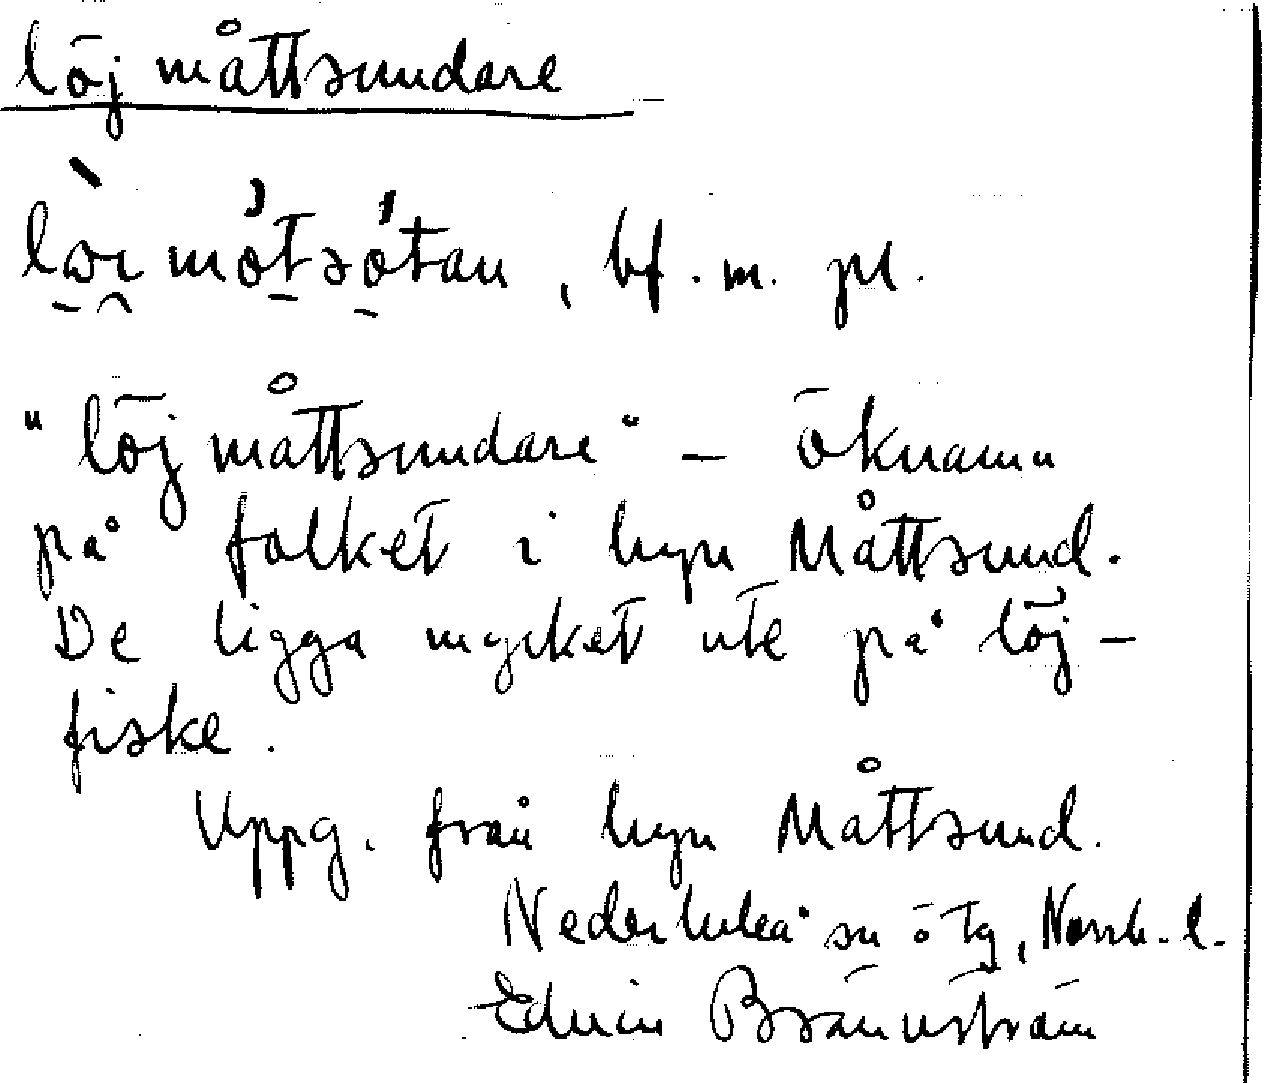 löjmåttsundare
bf. m. pl.
"löjmåttsundare" — öknamn
på folket i byn Måttsund.
De ligga mycket ute på löj-
fiske.
Uppg. från byn Måttsund.
Nederluleå sn ö Tg, Norrb. l.
Edvin Brännström